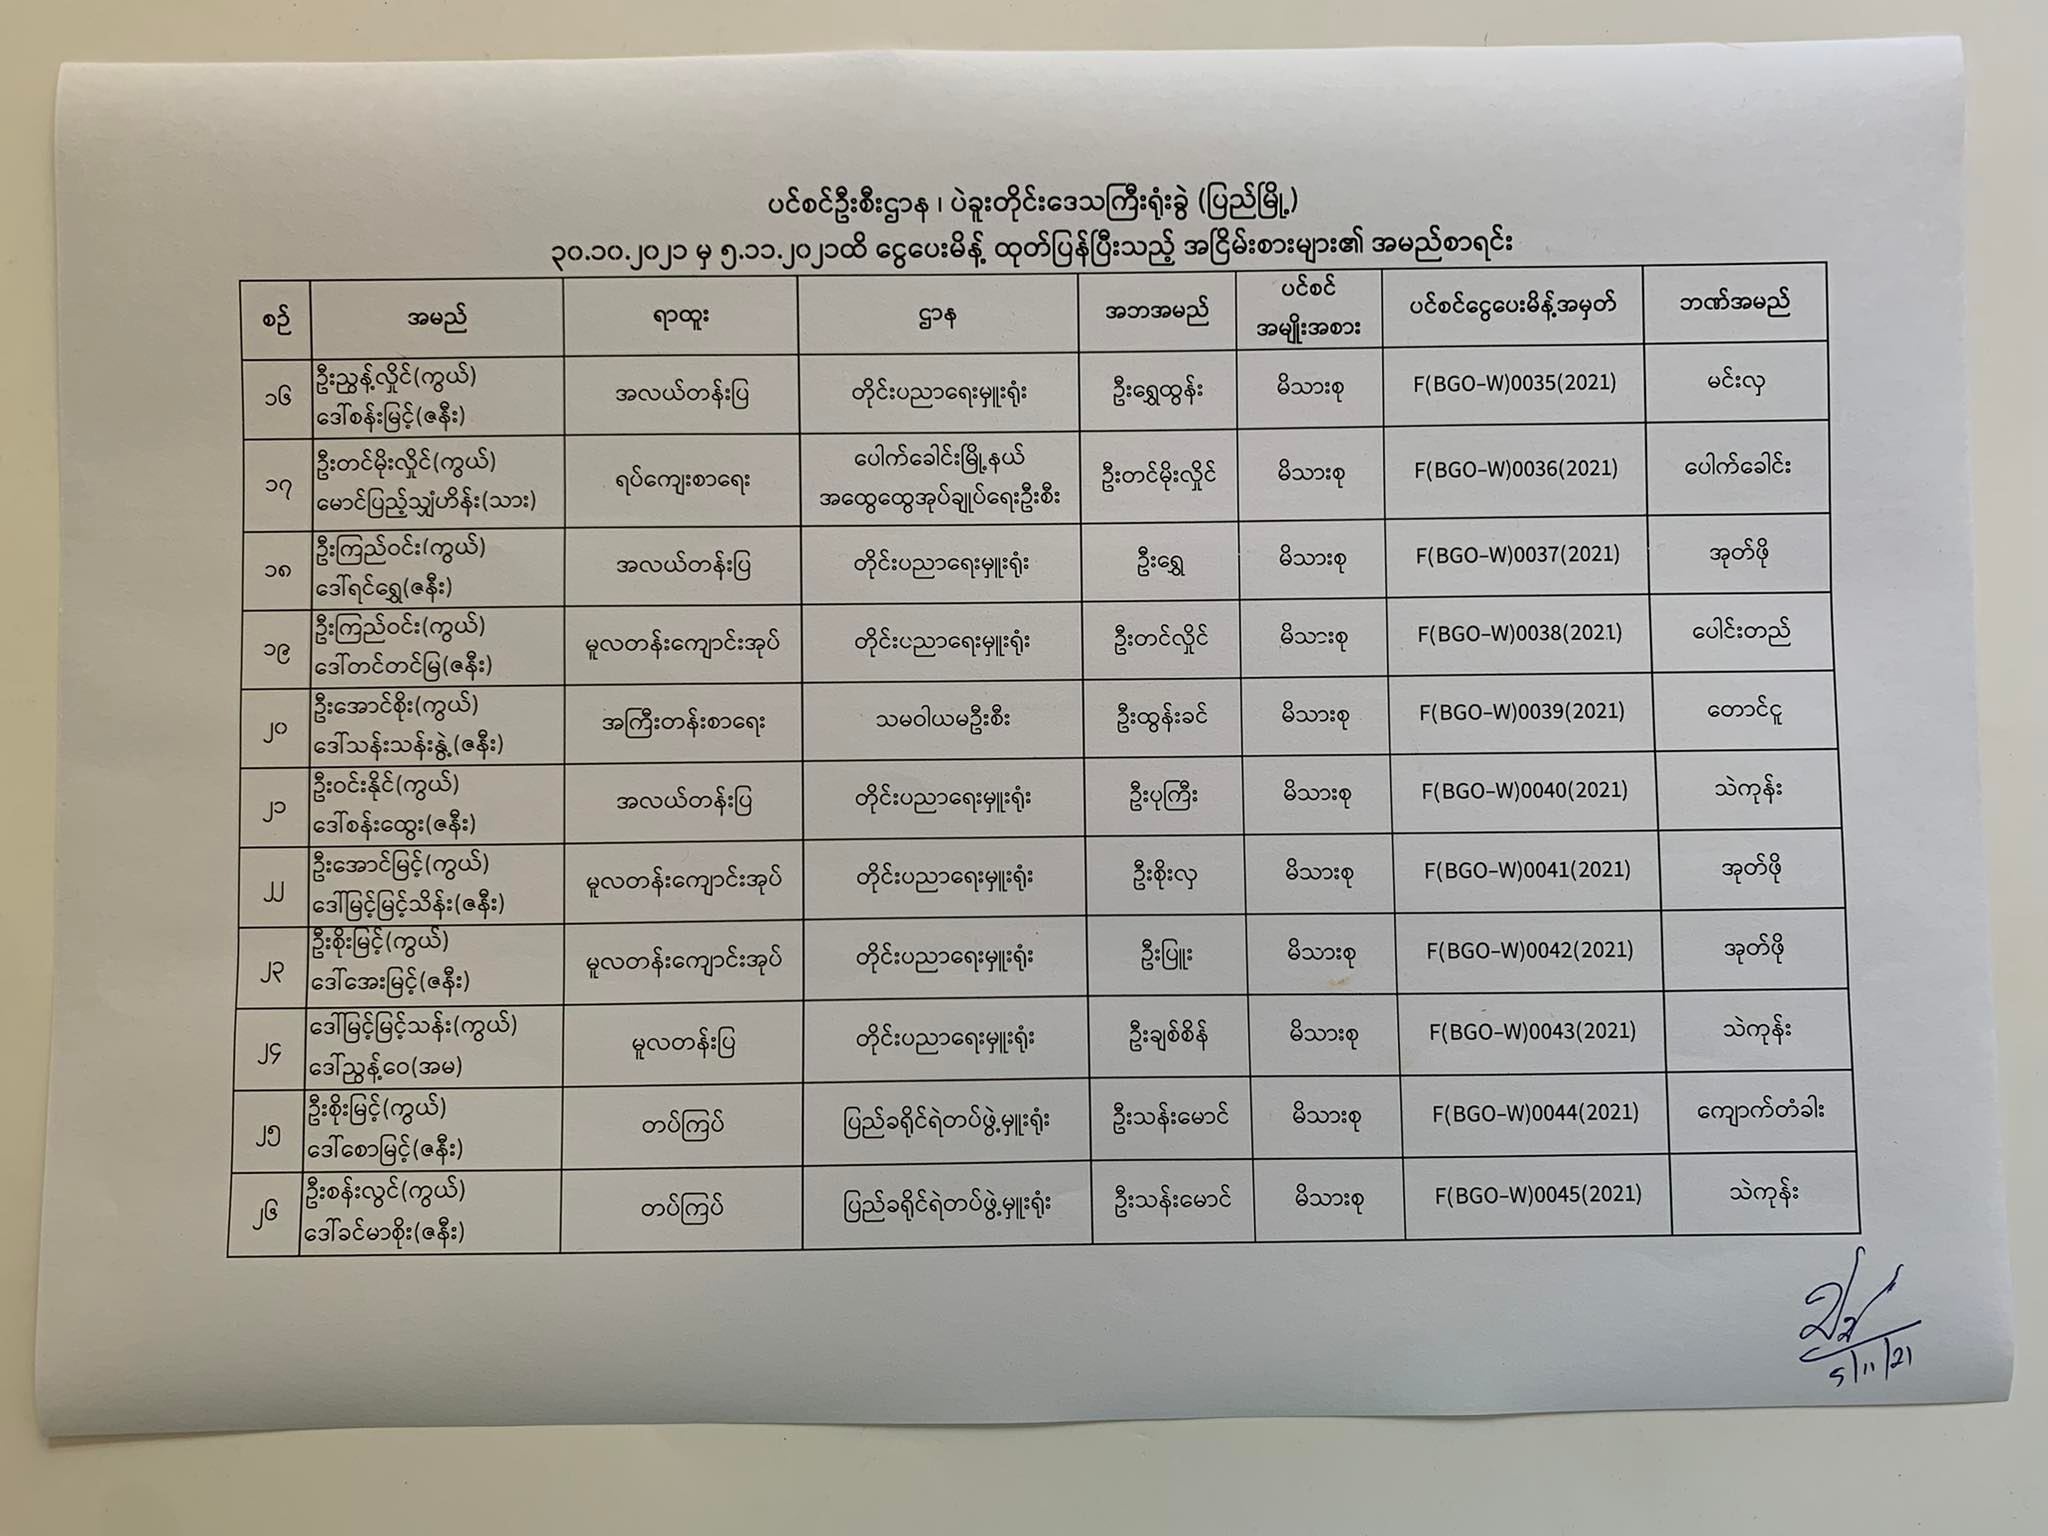 ပင်စင်ဦးစီးဌာန ၊ ပဲခူးတိုင်းဒေသကြီးရုံးခွဲ (ပြည်မြို့)
၃၀.၁၀.၂၀၂၁ မှ ၅.၁၁.၂၀၂၁ထိ ငွေပေးမိန့် ထုတ်ပြန်ပြီးသည့် အငြိမ်းစားများ၏ အမည်စာရင်း
စဉ် အမည် ရာထူး ဌာန အဘအမည် ပင်စင် အမျိုးအစား ပင်စင်ငွေပေးမိန့်အမှတ် ဘဏ်အမည်
၁၆ ဦးညွန့်လှိုင်(ကွယ်) ဒေါ်စန်းမြင့်(ဇနီး) အလယ်တန်းပြ တိုင်းပညာရေးမှူးရုံး ဦးရွှေထွန်း မိသားစု F(BGO-W)0035(2021) မင်းလှ
၁၇ ဦးတင်မိုးလှိုင်(ကွယ်) မောင်ပြည့်သျှံဟိန်း(သား) ရပ်ကျေးစာရေး ပေါက်ခေါင်းမြို့နယ် အထွေထွေအုပ်ချုပ်ရေးဦးစီး ဦးတင်မိုးလှိုင် မိသားစု F(BGO-W)0036(2021) ပေါက်ခေါင်း
၁၈ ဦးကြည်ဝင်း(ကွယ်) ဒေါ်ရင်ရွှေ(ဇနီး) အလယ်တန်းပြ တိုင်းပညာရေးမှူးရုံး ဦးရွှေ မိသားစု F(BGO-W)0037(2021) အုတ်ဖို
၁၉ ဦးကြည်ဝင်း(ကွယ်) ဒေါ်တင်တင်မြ(ဇနီး) မူလတန်းကျောင်းအုပ် တိုင်းပညာရေးမှူးရုံး ဦးတင်လှိုင် မိသားစု F(BGO-W)0038(2021) ပေါင်းတည်
၂၀ ဦးအောင်စိုး(ကွယ်) ဒေါ်သန်းသန်းနွဲ့(ဇနီး) အကြီးတန်းစာရေး သမဝါယမဦးစီး ဦးထွန်းခင် မိသားစု F(BGO-W)0039(2021) တောင်ငူ
၂၁ ဦးဝင်းနိုင်(ကွယ်) ဒေါ်စန်းထွေး(ဇနီး) အလယ်တန်းပြ တိုင်းပညာရေးမှူးရုံး ဦးပုကြီး မိသားစု F(BGO-W)0040(2021) သဲကုန်း
၂၂ ဦးအောင်မြင့်(ကွယ်) ဒေါ်မြင့်မြင့်သိန်း(ဇနီး) မူလတန်းကျောင်းအုပ် တိုင်းပညာရေးမှူးရုံး ဦးစိုးလှ မိသားစု F(BGO-W)0041(2021) အုတ်ဖို
၂၃ ဦးစိုးမြင့်(ကွယ်) ဒေါ်အေးမြင့်(ဇနီး) မူလတန်းကျောင်းအုပ် တိုင်းပညာရေးမှူးရုံး ဦးပြူး မိသားစု F(BGO-W)0042(2021) အုတ်ဖို
၂၄ ဒေါ်မြင့်မြင့်သန်း(ကွယ်) ဒေါ်ညွန့်ဝေ(အမ) မူလတန်းပြ တိုင်းပညာရေးမှူးရုံး ဦးချစ်စိန် မိသားစု F(BGO-W)0043(2021) သဲကုန်း
၂၅ ဦးစိုးမြင့်(ကွယ်) ဒေါ်စောမြင့်(ဇနီး) တပ်ကြပ် ပြည်ခရိုင်ရဲတပ်ဖွဲ့မှူးရုံး ဦးသန်းမောင် မိသားစု F(BGO-W)0044(2021) ကျောက်တံခါး
၂၆ ဦးစန်းလွင်(ကွယ်) ဒေါ်ခင်မာစိုး(ဇနီး) တပ်ကြပ် ပြည်ခရိုင်ရဲတပ်ဖွဲ့မှူးရုံး ဦးသန်းမောင် မိသားစု F(BGO-W)0045(2021) သဲကုန်း
5/11/21